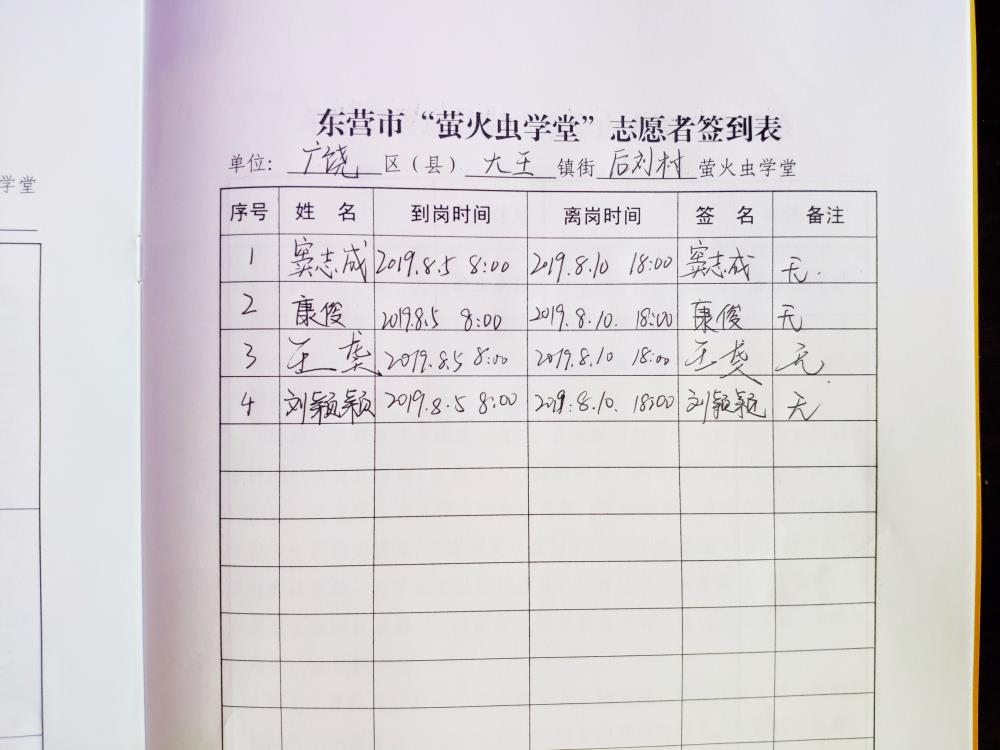 学堂
东营市“萤火虫学堂”志愿者签到表
单位：广饶区（县）大王镇街后刘村萤火虫学堂
序号 姓 名 到岗时间 离岗时间 签 名 备注
1 窦志成 2019.8.5 8:00 2019.8.10 18:00 窦志成 无.
2 康俊 2019.8.5 8:00 2019.8.10. 18:00 康俊 无
3 王龚 2019.8.5 8:00 2019.8.10 18:00 王龚 无.
4 刘颖颖 2019.8.5 8:00 2019.8.10. 18:00 刘颖颖 无